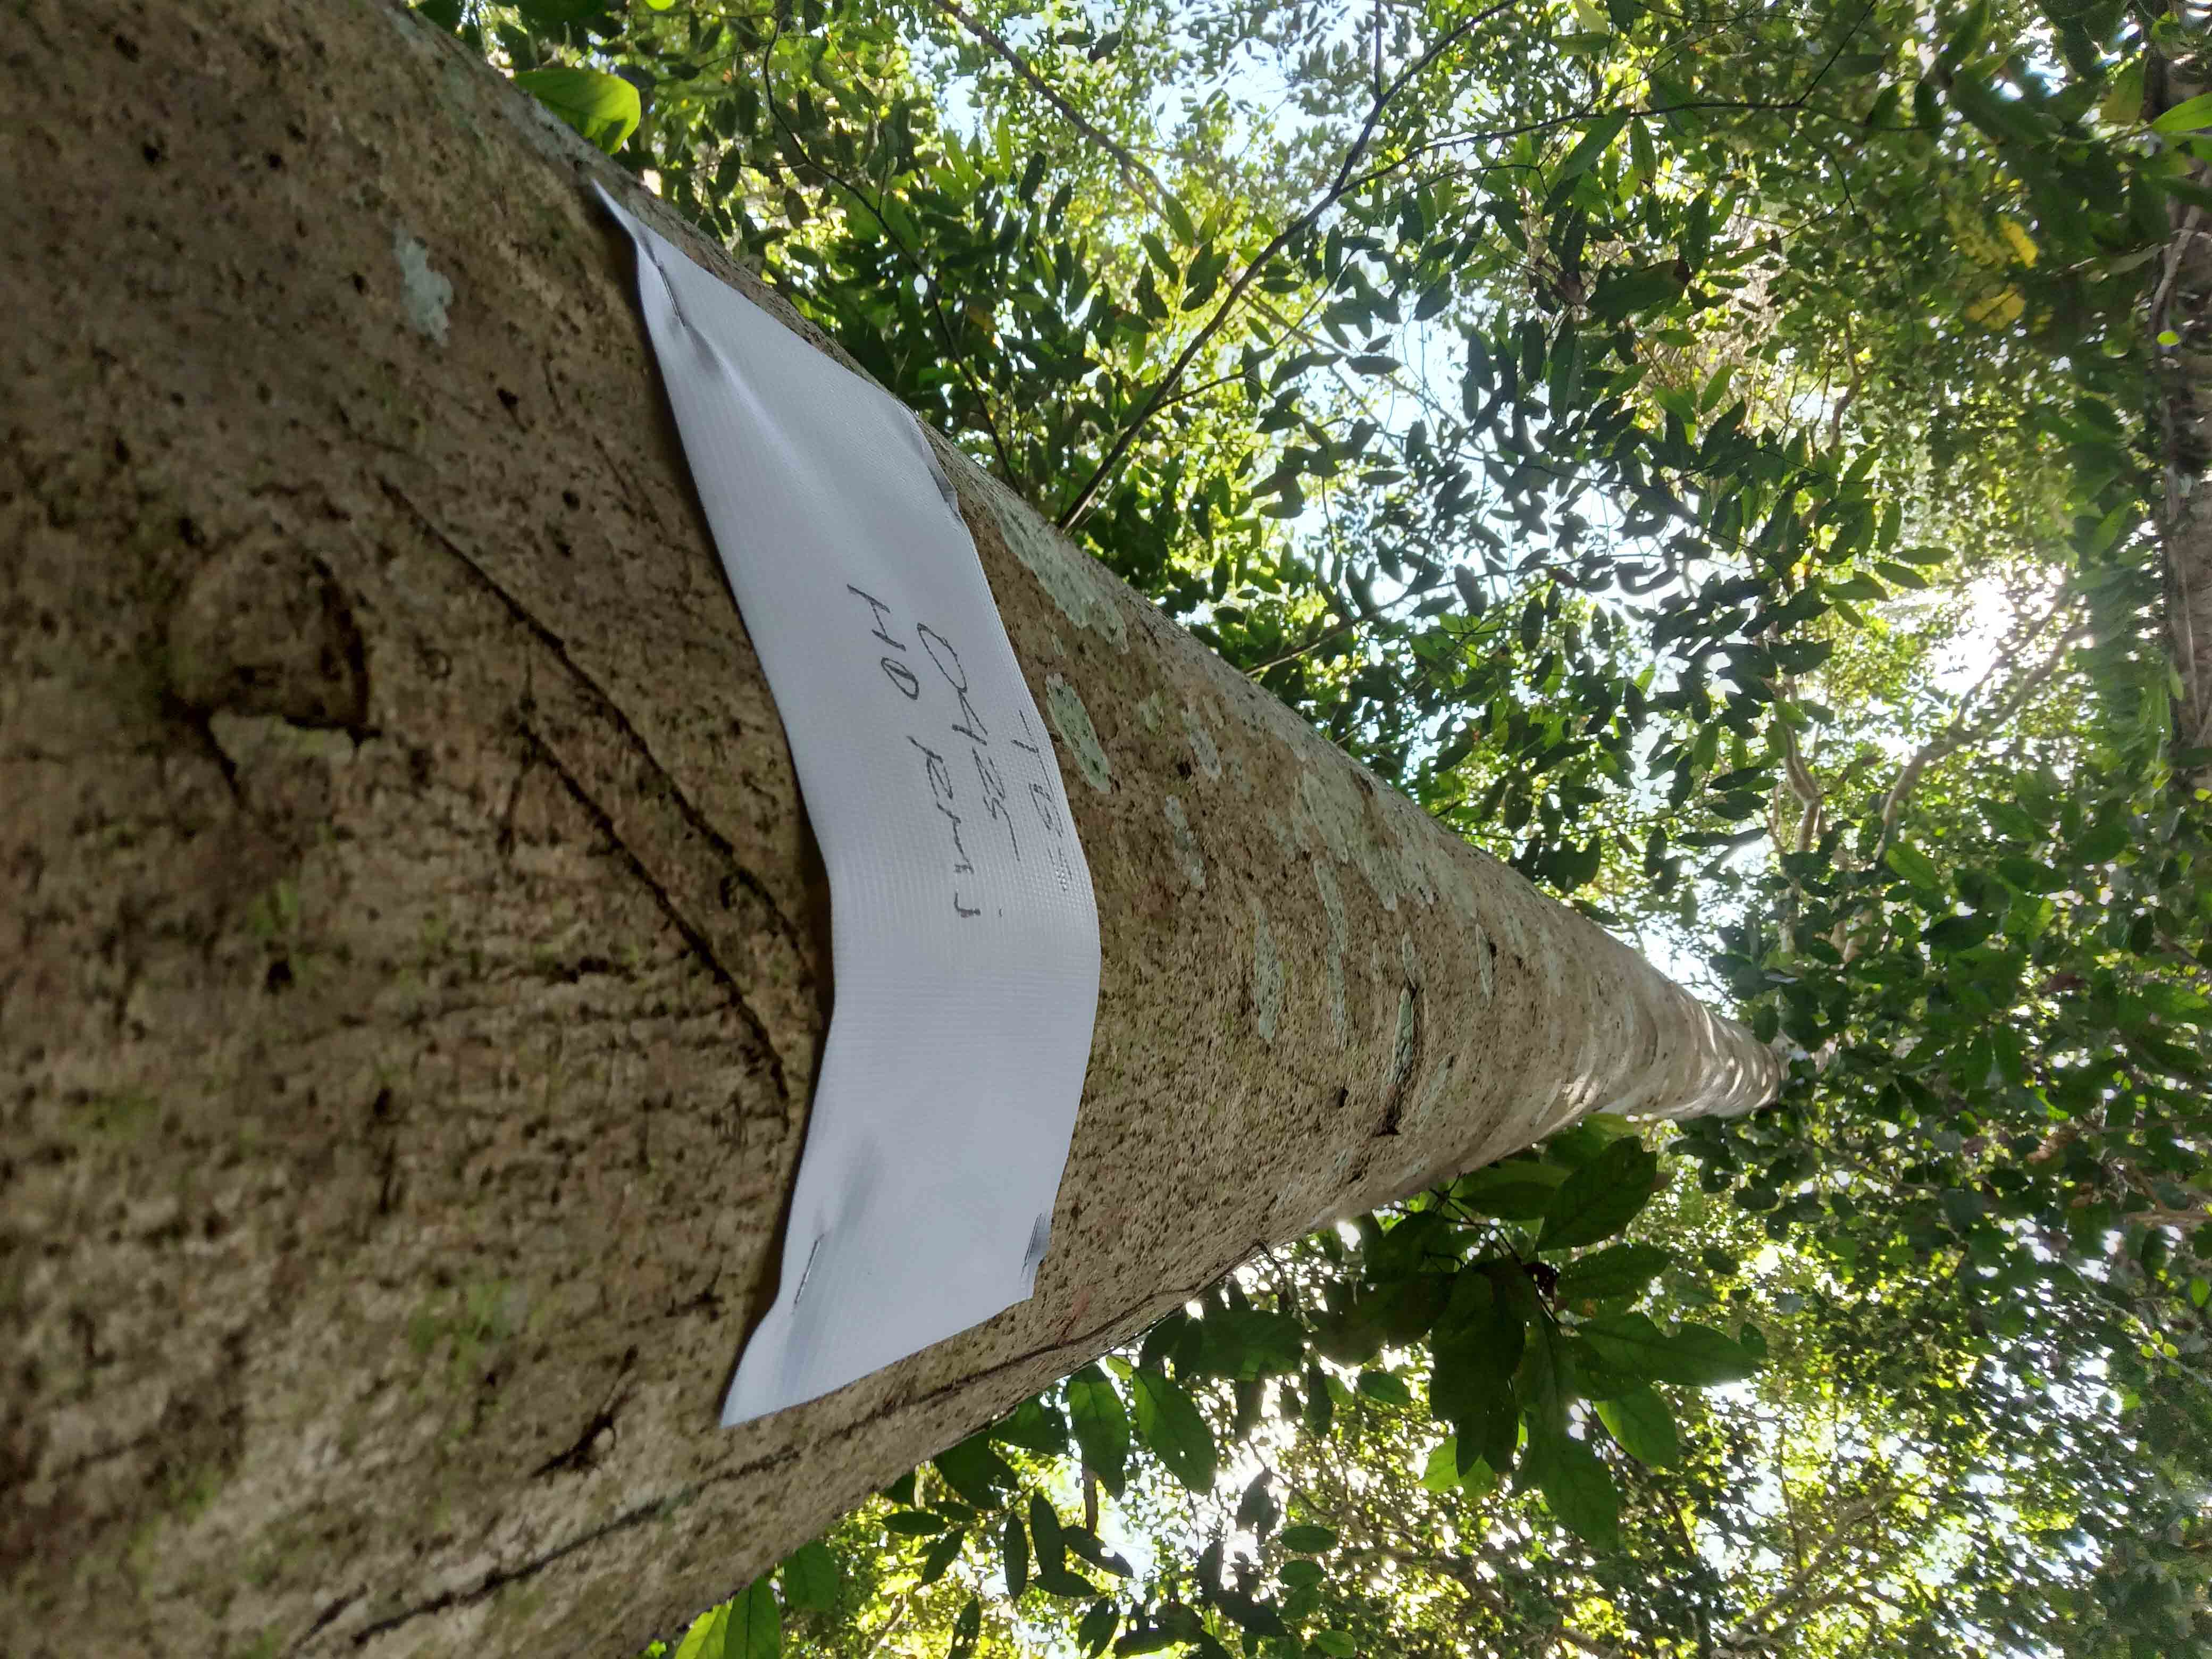 TB =
0425
HD Rmj